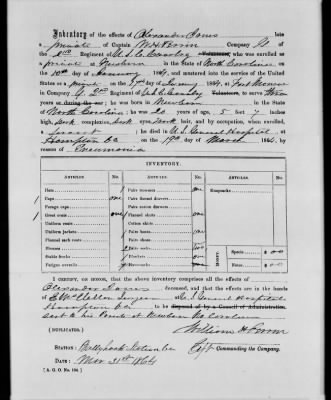 Inventory of the effects of Alexander Jones late
a private of Captain W. H. Company G
of the 2nd Regiment of U.S.C. Cavalry Volunteers, who was enrolled
as private at Newbern in the State of North Carolina on
the 10th day of January 1864, and mustered into the service of the United
States as a private on the day of January 1864, at Fort Monroe
in Company G, 2nd Regiment U.S.C. Cavalry Volunteers, to serve three
years or during the war; he was born in Newbern in the State
of North Carolina; he was 20 years of age, 5 feet 7 inches
high, dark complexion, dark eyes, dark hair, and by occupation, when enrolled,
a servant; he died in U.S. General Hospital, at
Hampton Va on the 19th day of March 1864, by
reason of Pneumonia
INVENTORY.
ARTICLES. No. ARTICLES. No. ARTICLES. No.
Hats Pair trowsers one Knapsacks
1 Caps one Pair flannel drawers
Forage caps Pair cotton drawers
1 Great coats one Flannel shirts one
Uniform coats Cotton shirts
Uniform jackets Pair boots one
Flannel sack coats Pair shoes
Blouses Pair socks two
Stable frocks Blankets one
Fatigue overalls Haversacks one
MONEY. Specie $ 00
Notes $ 00
I CERTIFY, ON HONOR, that the above inventory comprises all the effects of
Alexander deceased, and that the effects are in the hands
of E. McClellan Surgeon U.S. General Hospital
Hampton Va to be disposed of by a Council of Administration.
sent to his Parents at Newbern No Carolina
(DUPLICATES.) William H.
Capt Commanding the Company.
STATION: Station Va
DATE: Mar 31st 1864
[A. G. O. No. 100.]